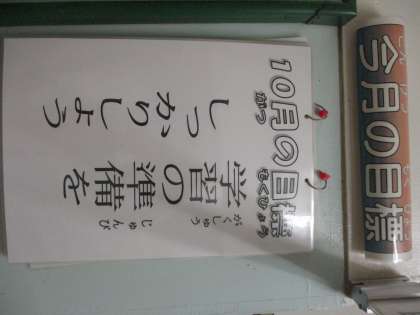 今月の目標
10月の目標
がつ もくひょう
がくしゅう じゅんび
学習の準備を
しっかりしよう